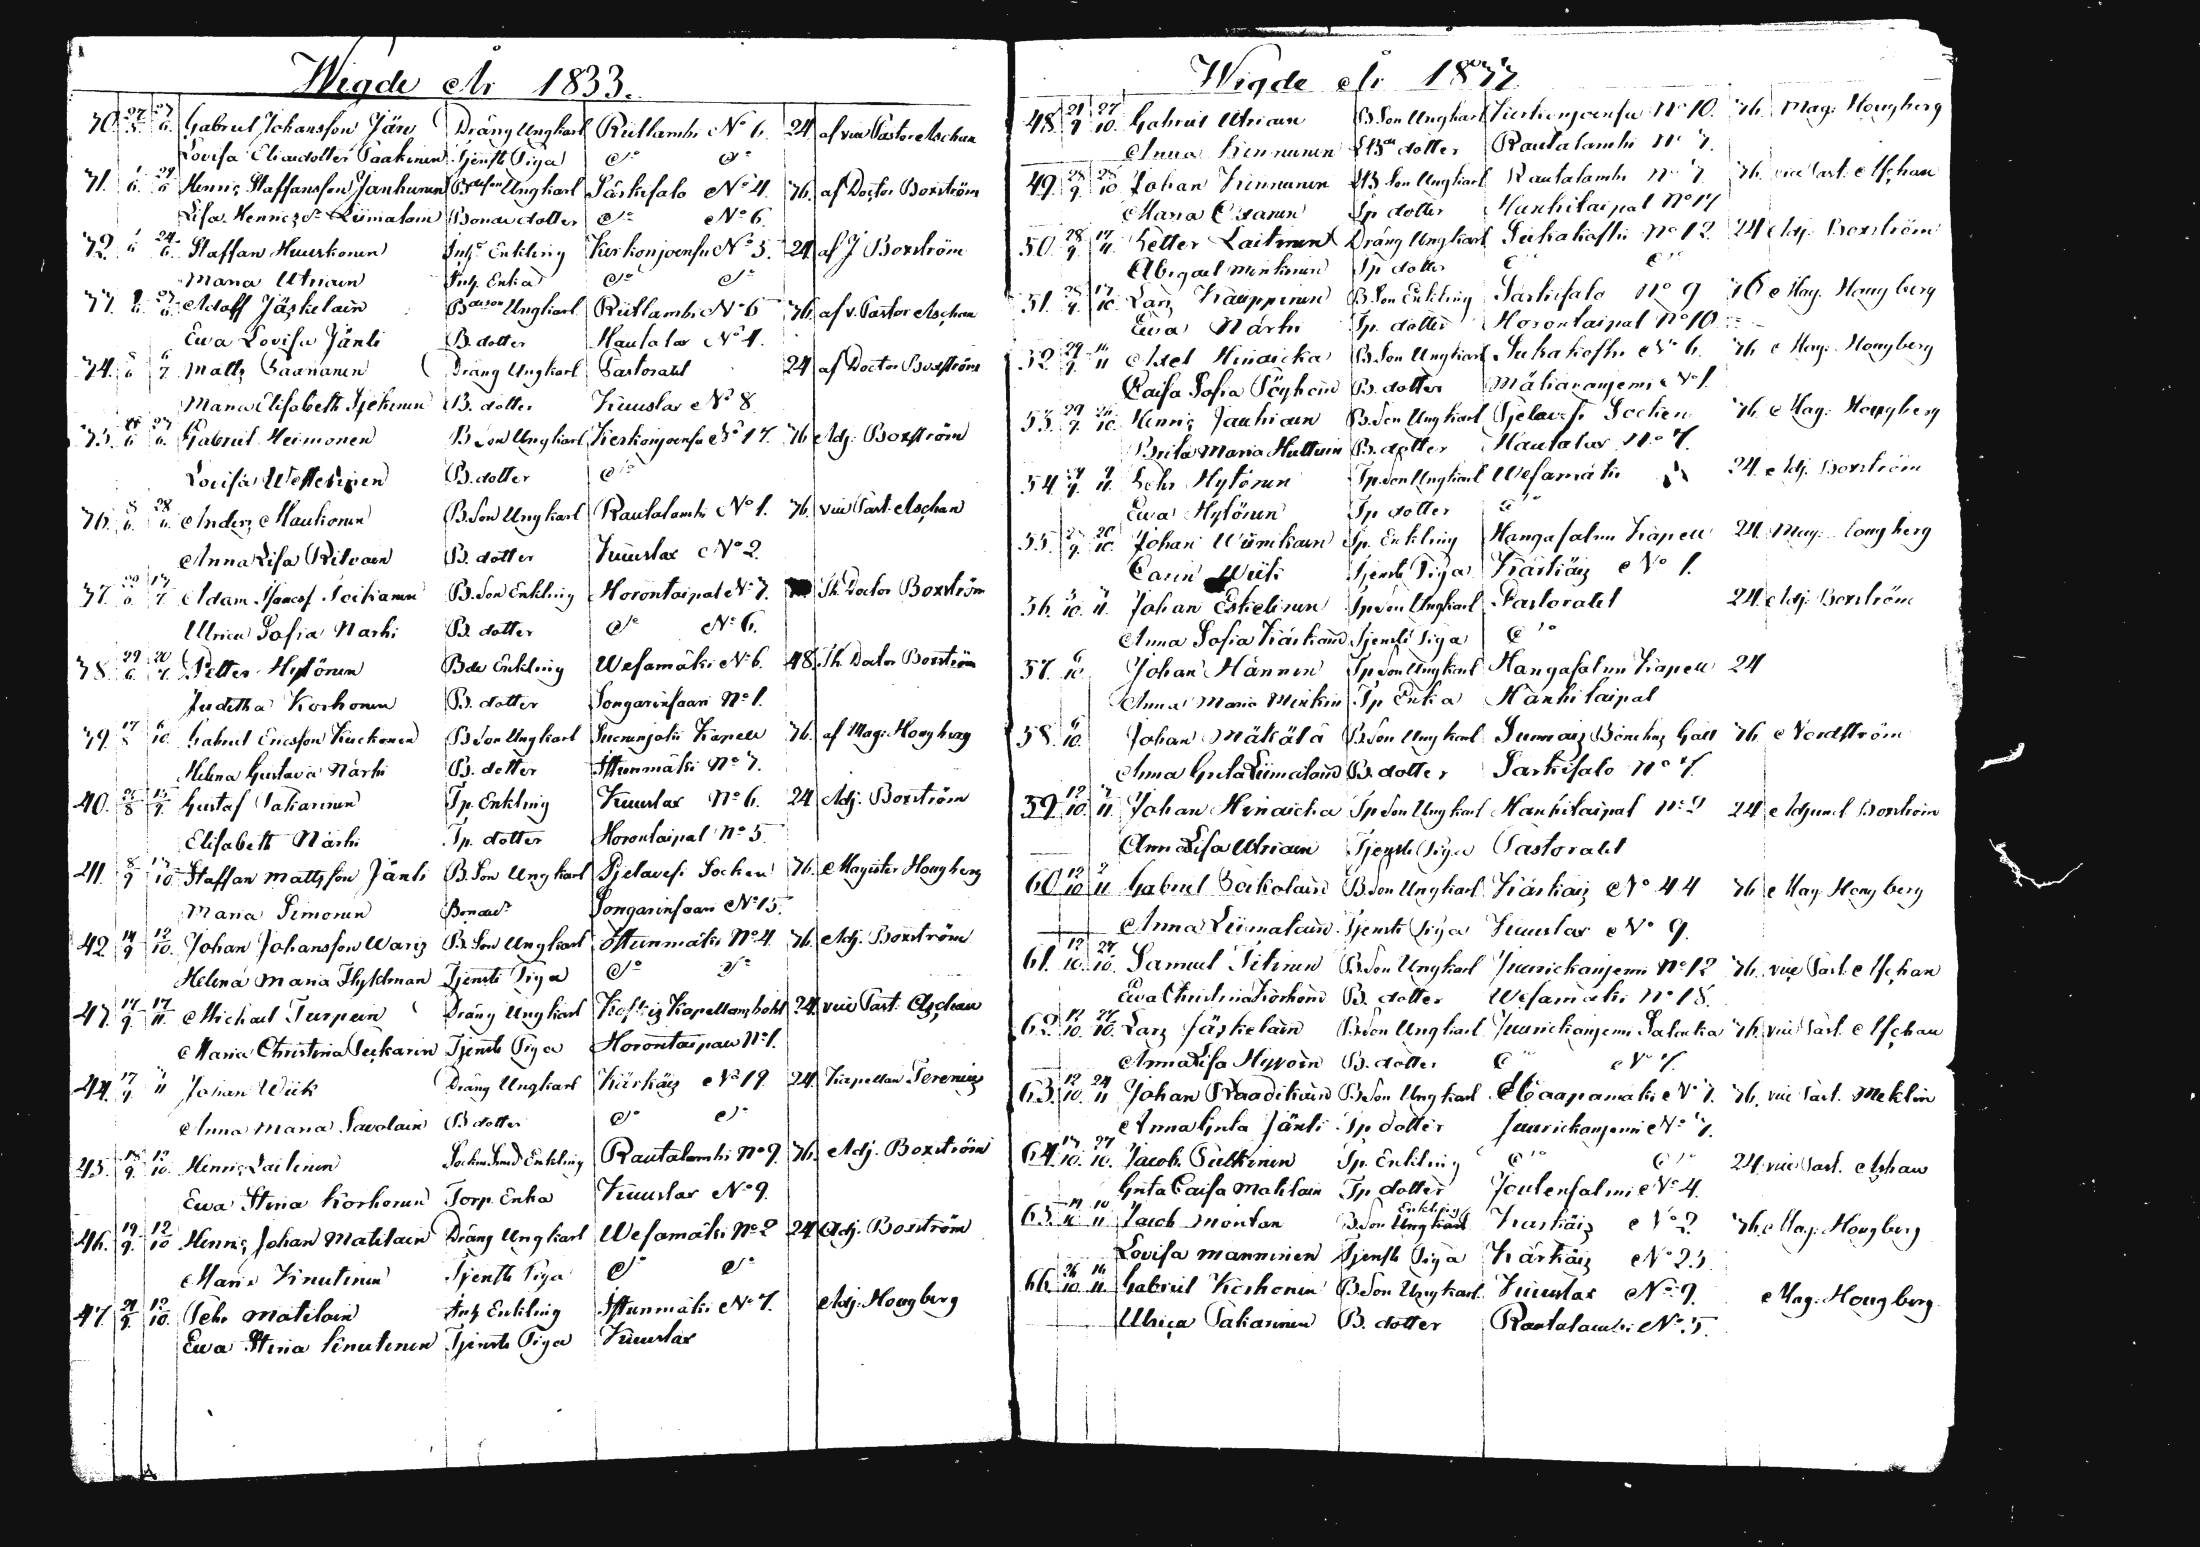 Wigde År 1833.
30. 27/5 27/6 Gabriel Johansson Järv Dräng Ungkarl Riitlambi No 6. 24 af vice Pastor Aschan
Lovisa Eliaedotter Paakinen Tjenst Piga do do
31. 1/6 24/6 Henric Staffansson Janhunen Bdeson Ungkarl Särkisalo No 4. 76. af Doctor Boxström
Lisa Henricsdr Liimatain Bondedotter do No 6.
32. 1/6 24/6 Staffan Huuskonen Inhs Enkling Kerkonjoensu No 5. 24 af J Boxström
Maria Utriain Inhs Enka do do
33. 27/6 Adolf Jäskelain Bdeson Ungkarl Riitlambi No 6 76. af v. Pastor Aschan
Ewa Lovisa Jänti B. dotter Hautalax No 4.
34. 8/6 6/7 Matts Saananen Dräng Ungkarl Pastoratet 24 af Doctor Boxström
Maria Elisabeth B. dotter Kuuslax No 8.
35. 27/6 Gabriel Heimonen B Son Ungkarl Kerkonjoensu No 17. 76 Adj. Boxström
Lovisa Westerinen B. dotter do
36. 8/6 28/6 Anders Maukonen B. Son Ungkarl Rautalambi No 1. 76. vice Past. Aschan
Anna Lisa Ritvain B. dotter Kuuslax No 2.
37. 17/7 Adam B. Son Enkling Horontaipal No 7. Th. Doctor Boxström
Ulrica Sofia Närhi B. dotter do No 6.
38. 29/6 20/7 Petter Hytönen Bde Enkling Wesamäki No 6. 48 Th. Doctor Boxström
Juditha Korhonen B. dotter Songarinsaari No 1.
39. 17/8 6/10 Gabriel Ericsson Kuckonen B Son Ungkarl Suonenjoki Kapell 76. af Mag: Hougberg
Helena Gustava Närhi B. dotter Istunmäki No 7.
40. 25/8 15/9 Gustaf Pakarinen Tp. Enkling Kuuslax No 6. 24 Adj. Boxström
Elisabeth Närhi Tp. dotter Horontaipal No 5
41. 8/9 13/10 Staffan Mattsson Jänti B. Son Ungkarl Pjelavesi Socken 76. Magister Hougberg
Maria Simonen Bondedr Songarinsaari No 15.
42. 14/9 12/10 Johan Johansson Waris B. Son Ungkarl Istunmäki No 4. 76. Adj. Boxström
Helena Maria Tjenst Piga do do
43. 17/9 17/11 Michael Turpein Dräng Ungkarl Kapellansbohl 24 vice Past. Aschan
Maria Christina Tjenst Piga Horontaipal No 1.
44. 17/9 Johan Wiik Dräng Ungkarl Kärkäis No 19. 24. Kapellan
Anna Maria Savolain B dotter do do
45. 12/10 Henric Laitinen Sockne Smed Enkling Rautalambi No 9. 76. Adj. Boxström
Ewa Stina Korhonen Torp. Enka Kuuslax No 9.
46. 19/9 12/10 Henric Johan Matilain Dräng Ungkarl Wesamäki No 2 24 Adj. Boxström
Maria Knutinen Tjenst Piga do do
47. 21/9 12/10 Pehr Matilain Inhs Enkling Istunmäki No 7. Adj. Hougberg
Ewa Stina Knutinen Tjenst Piga Kuuslax
Wigde År 1833
48. 21/9 27/10 Gabriel Utriain B Son Ungkarl Kerkonjoensu No 10. 76. Mag: Hougberg
Anna Kinnunen dotter Rautalambi No 7.
49. 28/9 28/10 Johan Kinnunen Son Ungkarl Rautalambi No 7 76. vice Past. Aschan
Maria Oisanen Tp dotter Hankitaipal No 17
50. 28/9 17/11 Petter Laitinen Dräng Ungkarl Sukakoski No 12. 24 Adj. Boxström
Abigael Minkinen Tp dotter do do
51. 28/9 Lars Kauppinen B. Son Enkling Särkisalo No 9 76 Mag. Hougberg
Ewa Närhi Tp. dotter Horontaipal No 10
52. 29/9 Axel Hinaicka B. Son Ungkarl Sukakoski No 6. 76 Mag: Hougberg
Caisa Sofia Pöyhein B. dotter No 1.
53. 29/9 Henric Jauhiain B. Son Ungkarl Pjelavesi Socken 76. Mag: Hougberg
Brita Maria Huttuin B. dotter Hautalax No 7.
54. Pehr Hytönen Tp. Son Ungkarl Wesamäki 24. Adj. Boxström
Ewa Hytönen Tp dotter do
55. 20/10 Johan Tp. Enkling Hangasalmi Kapell 24. Mag. Hougberg
Carin Wiik Tjenst Piga Kärkäis No 1.
56. Johan Eskelinen Tp Son Ungkarl Pastoratet 24. Adj. Boxström
Anna Sofia Kärkäin Tjenst Piga do
57. 6/10 Johan Hänninen Tp Son Ungkarl Hangasalmi Kapell 24
Anna Maria Minkin Tp Enka Hankitaipal
58. 6/10 Johan Mäkälä B. Son Ungkarl Gäll 76. Nordström
Anna Greta Liimatain B. dotter Särkisalo No 7.
59. 12/10 Johan Hinaicka Tp Son Ungkarl Hankitaipal No 2 24 Adjunct Boxström
Anna Lisa Utriain Tjenst Piga Pastoratet
60. Gabriel B. Son Ungkarl Kärkäis No 44 76 Mag Hougberg
Anna Liimatain Tjenst Piga Kuuslax No 9.
61. 12/10 27/10 Samuel Pitinen B. Son Ungkarl No 12 76. vice Past. Aschan
Ewa Christina Korhoin B. dotter Wesamäki No 18.
62. 12/10 27/10 Lars Jäskelain B. Son Ungkarl 76. vice Past. Aschan
Anna Lisa Hyvöin B. dotter do No 7.
63. 12/10 24/11 Johan Raadikain B. Son Ungkarl Haapamäki No 7. 76. vice Past. Meklin
Anna Greta Jänti Tp dotter No 7.
64. 27/10 Jacob Pulkinen Tp. Enkling do do 24 vice Past. Aschan
Greta Caisa Matilain Tp dotter Joutensalmi No 4.
65. 10/11 Jacob Montan B. Son Ungkarl Enkling Kärkäis No 2. 76. Mag. Hougberg
Lovisa Manninen Tjenst Piga Kärkäis No 23.
66. 26/10 16/11 Gabriel Korhonen B. Son Ungkarl Kuuslax No 9. Mag: Hougberg
Ulrica Pakarinen B. dotter Rautalambi No 5.